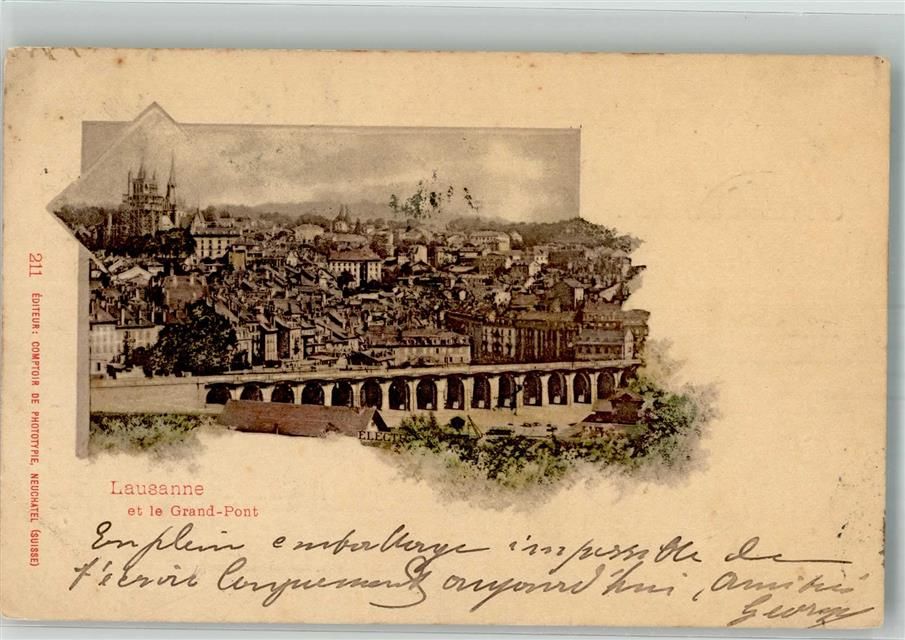 211 ÉDITEUR: COMPTOIR DE PHOTOTYPIE, NEUCHATEL (SUISSE)
ELECT
Lausanne
et le Grand-Pont
En plein emballage impossible de
t'écrire longuement aujourd'hui, Amitiés
Georges